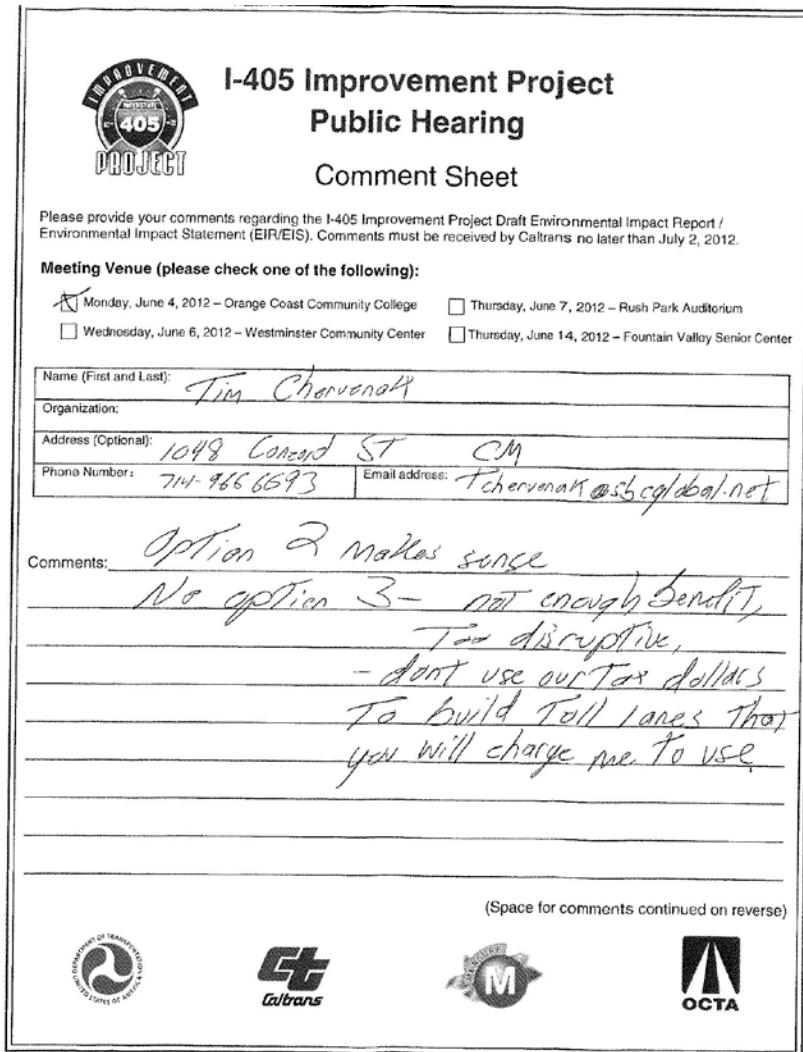 IMPROVEMENT
INTERSTATE
405
PROJECT
I-405 Improvement Project
Public Hearing
Comment Sheet
Please provide your comments regarding the I-405 Improvement Project Draft Environmental Impact Report /
Environmental Impact Statement (EIR/EIS). Comments must be received by Caltrans no later than July 2, 2012.
Meeting Venue (please check one of the following):
Monday, June 4, 2012 – Orange Coast Community College
Thursday, June 7, 2012 – Rush Park Auditorium
Wednesday, June 6, 2012 – Westminster Community Center
Thursday, June 14, 2012 – Fountain Valley Senior Center
Name (First and Last): Tim Chervenak
Organization:
Address (Optional): 1048 Concord ST CM
Phone Number: 714-966 6693
Email address: Tchervenak@sbcglobal.net
Comments: Option 2 makes sense
No option 3 - not enough benefit,
Too disruptive,
- dont use our Tax dollars
To build Toll lanes That
you will charge me To use
(Space for comments continued on reverse)
DEPARTMENT OF TRANSPORTATION
UNITED STATES OF AMERICA
Ct
Caltrans
MEASURE
M
OCTA